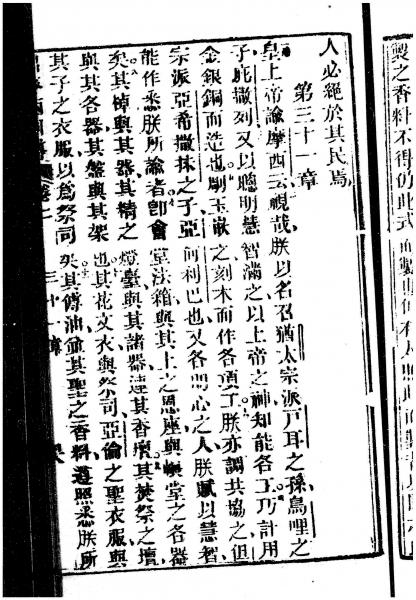 製之香料不得仿此式而製
人必絕於其民焉
第三十一章
皇上帝諭摩西云視哉朕以名召猶太宗派戸耳之孫鳥哩之
子庇撒列又以聰明慧智滿之以上帝之神知能各工巧計用
金銀銅而造也刷玉嵌之刻木而作各項工朕亦調共協之但
宗派亞希撒抹之子亞何利巴也又各明心之人朕賦以慧智
能作悉朕所諭者卽會堂法箱與其上之恩座與幔堂之各器
矣其棹與其器其精之燈臺與其諸器連其香壇其焚祭之壇
與其各器其盤與其架也其花文衣與祭司亞倫之聖衣服與
其子之衣服以爲祭司矣其傅油並其聖之香料遵照悉朕所
卷二 三十一章